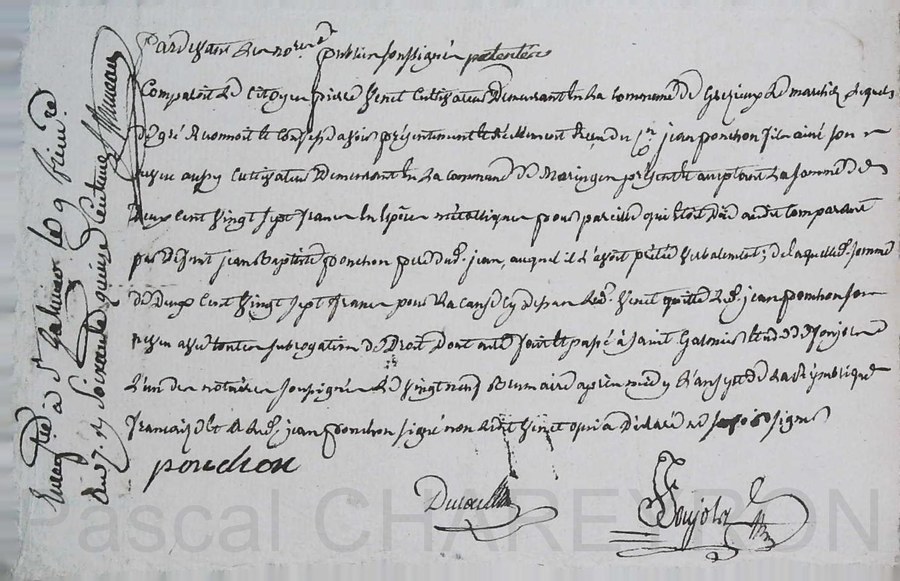 Pardevant les not.res publics soussignés patentés
Comparoit le Citoyen pierre Venet Cultivateur Demeurant En La Commune de Grezieux Le marché Lequel
De gré Reconnoit et Confesse avoir présentement et Réellement Reçu du Cn. jean ponchon fils ainé son
neveu aussy Cultivateur Demeurant En La Commune de Maringes présent et acceptant La somme de
Deux Cent Vingt Sept francs En Espèces métalliques pour pareille qui étoit Dûe audit Comparant
par Défunt jean Baptiste ponchon père dud. jean, auquel il L'avoit prêtée Verbalement; de laquelle somme
De Deux Cent Vingt Sept francs pour La Cause Cy dessus Led. Venet quitte Led. jean ponchon son
neveu avec toutte subrogation De Droit, Dont acte fait et passé à Saint Galmier Etude de Soujola
L'un des notaires soussignés Le Vingt neuf Brumaire après midy L'an sept de La République
française Et Led. jean ponchon signé non Ledit Venet qui a Déclaré ne Savoir signer
ponchon
Soujola
Enreg.tré à St. Galmier le 9 frim.re
an 7. R Soixante quinze Centimes
Pascal CHAREYRON